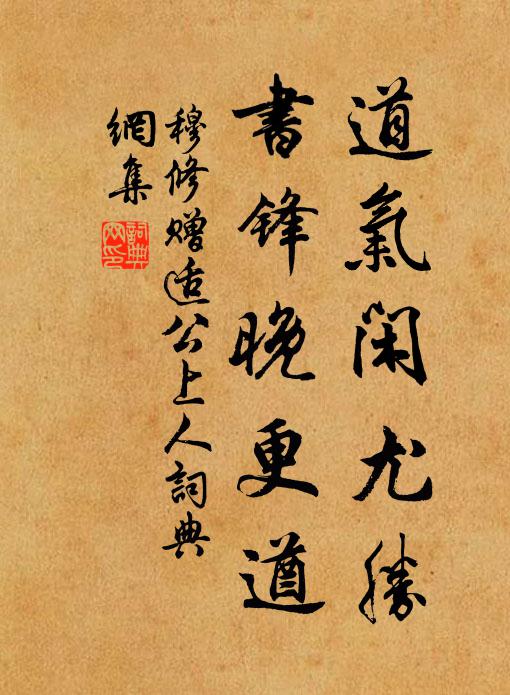 道氣閑尤勝
書鋒晚更遒
穆修贈适公上人詞典
網集
詞典
网印